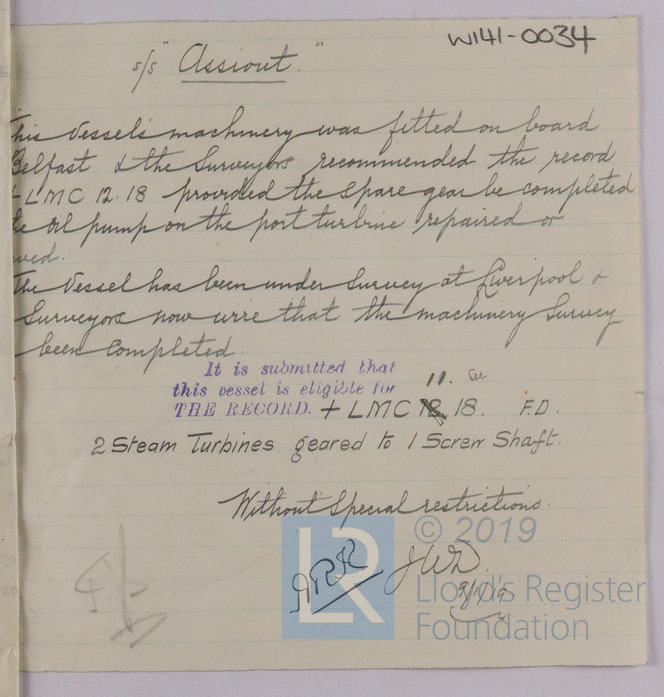 W141-0034
s/s "Assiout."
his Vessel's machinery was fitted on board
Belfast & the Surveyors recommended the record
+LMC 12.18 provided the spare gear be completed
he oil pump on the port turbine repaired or
ved.
The Vessel has been under survey at Liverpool &
Surveyors now wire that the machinery Survey
been completed.
It is submitted that
this vessel is eligible for
THE RECORD. + LMC 11. 18. F.D.
2 Steam Turbines geared to 1 Screw Shaft.
Without Special restrictions.
ARR JWD.
9/1/19
LR
© 2019
Lloyd's Register
Foundation